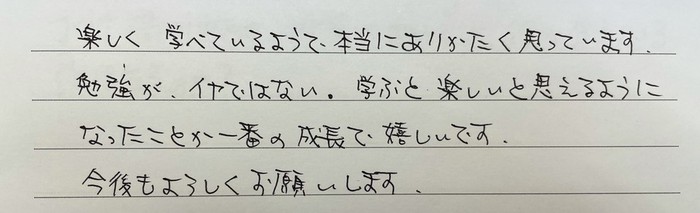 楽しく 学べているようで、本当にありがたく思っています.
勉強が、イヤではない。学ぶと楽しいと思えるように
なったことが一番の成長で嬉しいです.
今後もよろしくお願いします.